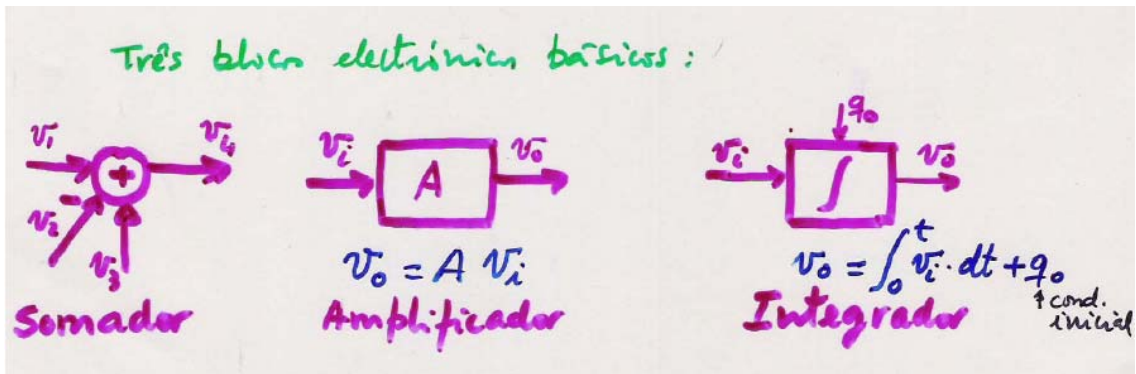 Três blocos electrónicos básicos:
v₁ v₄
-
v₂ +
v₃
Somador
v_i A v_o
v_o = A v_i
Amplificador
q_o
v_i ∫ v_o
v_o = ∫₀ᵗ v_i · dt + q_o
↑ cond.
inicial
Integrador